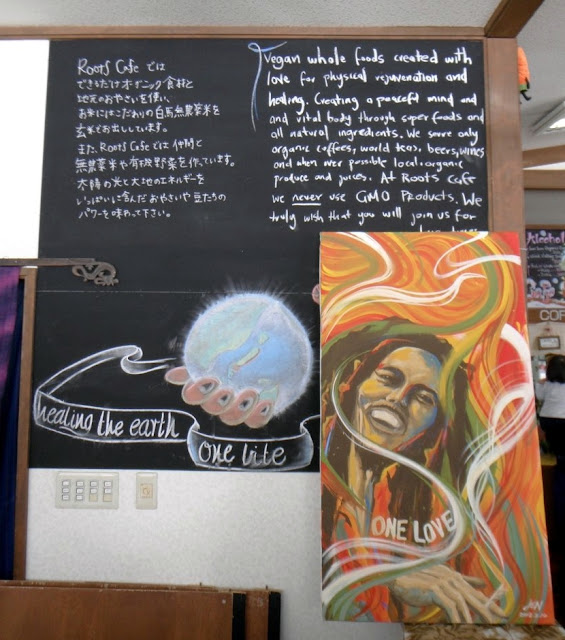 Roots Cafe では
できるだけオーガニック食材と
地元のおやさいを使い、
お米にはこだわりの白馬無農薬米を
玄米でお出ししています。
また、Roots Cafe では仲間と
無農薬米や有機野菜を作っています。
太陽の光と大地のエネルギーを
いっぱいに含んだおやさいや豆たちの
パワーを味わって下さい。
Vegan whole foods created with
love for physical rejuvenation and
healing. Creating a peaceful mind and
and vital body through super foods and
all natural ingredients. We serve only
organic coffees, world teas, beers, wines
and when ever possible local organic
produce and juices. At Roots Cafe
we never use GMO Products. We
truly wish that you will join us for
healing the earth
one bite
ONE LOVE
Alcohol
COF